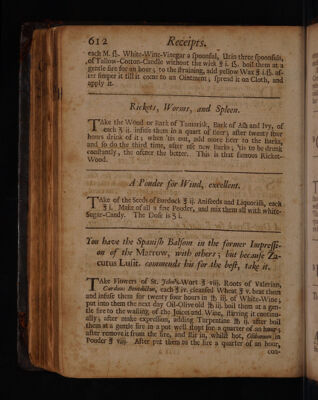 612 Receipts.
each M. ſs. White-Wine-Vinegar a ſpoonful, Urin three ſpoonfuls,
of Tallow-Cotton-Candle without the wick ℥ i. ſs. boil them at a
gentle fire for an hour; to the ſtraining, add yellow Wax ℥ i.ſs. af-
ter ſimper it till it come to an Ointment; ſpread it on Cloth, and
apply it.
Rickets, Worms, and Spleen.
TAke the Wood or Bark of Tamarisk, Bark of Aſh and Ivy, of
each ℥ ii. infuſe them in a quart of Beer; after twenty four
hours drink of it; when 'tis out, add more beer to the barks,
and ſo do the third time, after uſe new barks; 'tis to be drunk
conſtantly, the oftner the better. This is that famous Ricket-
Wood.
A Pouder for Wind, excellent.
TAke of the Seeds of Burdock ℥ ij. Aniſeeds and Liquoriſh, each
℥ i. Make of all a fine Pouder, and mix them all with white-
Sugar-Candy. The Doſe is ʒ i.
You have the Spaniſh Balſom in the former Impreſſi-
on of the Marrow, with others; but becauſe Za-
cutus Luſit. commends his for the beſt, take it.
TAke Flowers of St. John's-Wort ℥ viij. Roots of Valerian,
Carduus Benedictus, each ℥ iv. cleanſed Wheat ℥ v. beat them
and infuſe them for twenty four hours in ℔ iij. of White-Wine;
put into them the next day Oil-Olive old ℔ iij. boil them at a gen-
tle fire to the waſting of the Juices and Wine, ſtirring it continu-
ally; after make expreſſion, adding Turpentine ℔ ij. after boil
them at a gentle fire in a pot well ſtopt for a quarter of an hour;
after remove it from the fire, and ſtir in, whilſt hot, Olibanum in
Pouder ℥ viij. After put them to the fire a quarter of an hour,
con-